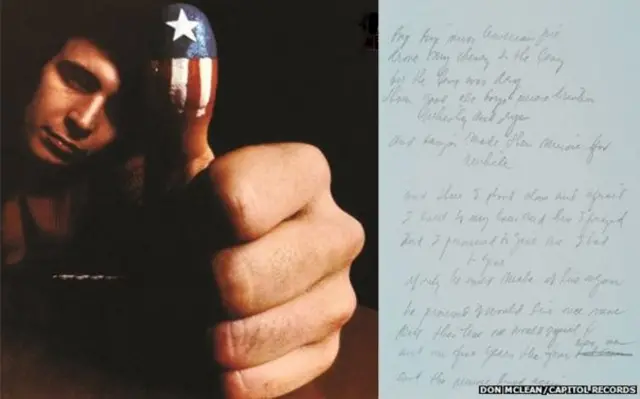 Bye bye miss American pie
Drove my chevy to the levy
but the levy was dry
Them good ole boys were drinkin
whiskey and rye
And made their music for
awhile
and there I stood alone and afraid
I my knees and there I prayed
And I promised to give all I had
to give
if only he could make it live again
he promised it would live once more
But this time one would equal 4
and in five years the four
and the music lived again
DON MCLEAN/CAPITOL RECORDS